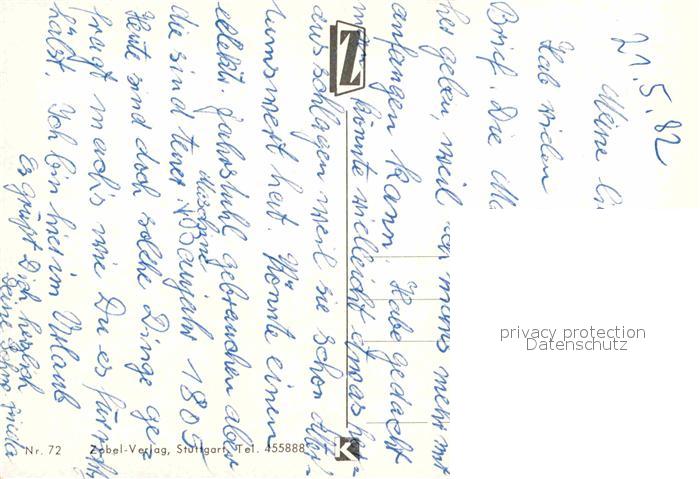 21.5.82
Meine
Hab vielen
Brief. Die
her geben, weil man nichts mehr mit
anfangen kann. Habe gedacht
man könnte vielleicht etwas her=
ausschlagen weil sie schon Alter=
tumswert hat. Könnte einen
elektr. Fahrstuhl gebrauchen aber
die sind teuer. Maschine Baujahr 1805
Heute sind doch solche Dinge ge=
fragt mach's wie Du es für richtig
hälst. Ich bin hier im Urlaub
Es grüßt Dich herzlich
Deine Schw. Frieda
Nr. 72 Zobel-Verlag, Stuttgart, Tel. 455888
Z
K
privacy protection
Datenschutz